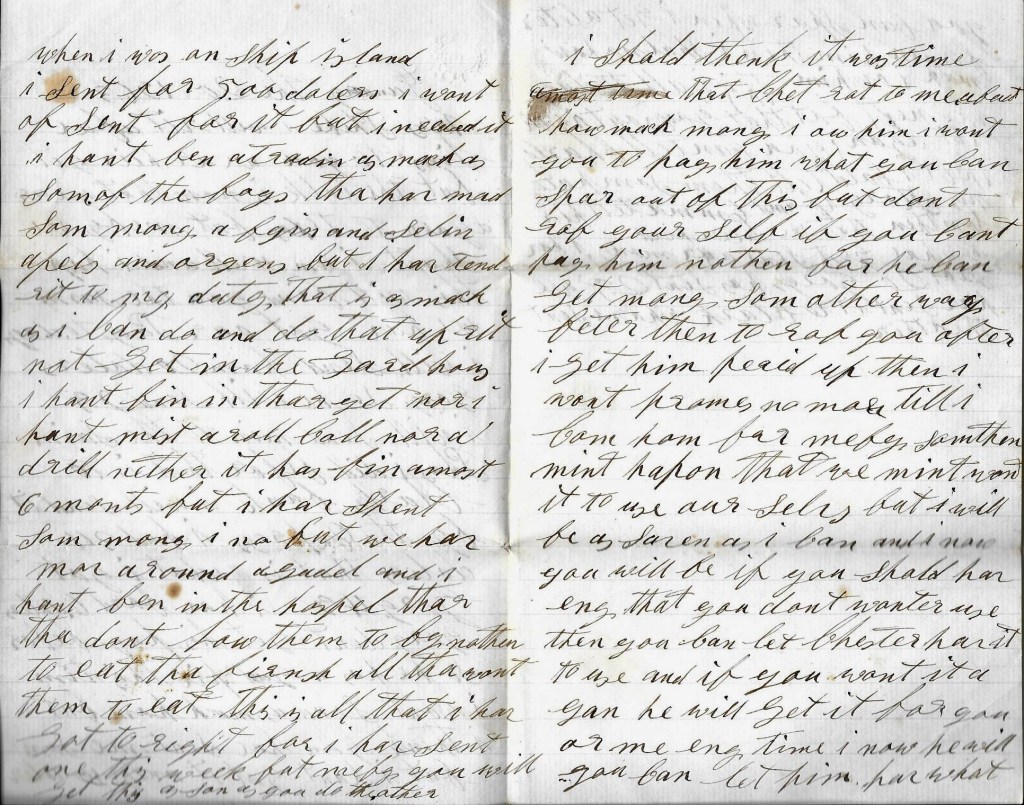 when i was on ship island
i sent for 5.00 dolers i wont
of sent for it but i needed it
i hant ben a tradin as mach as
som of the boys tha har mad
som mony a byin and selin
apels and orgens but i har tend
rit to my duty that is as mach
as i can do and do that up rit
not get in the gard hous
i hant bin in thar yet nor i
hant mist a roll call nor a
drill nether it has bin amost
6 monts but i har spent
som mony i no but we har
mor around a gudel and i
hant ben in the hospel thar
tha dont low them to by nothen
to eat tha firnsh all tha wont
them to eat this is all that i har
got to right for i har sent
one this week but mebys you will
get this as son as you do the other
i shold thenk it was time
amost time that Chet rot to me about
how mach mony i ow him i wont
you to pay him what you can
spar out of this but dont
rob your self if you cant
pay him nothen for he can
get mony som other way
beter then to rob you after
i get him peaid up then i
wont promes no more till i
com hom for mebys somthen
mint hapon that we mint wont
it to use our selvs but i will
be as saren as i can and i now
you will be if you shold har
eny that you dont wonter use
then you can let Chester har it
to use and if you wont it a
gan he will get it for you
or me eny time i now he will
you can let him har what